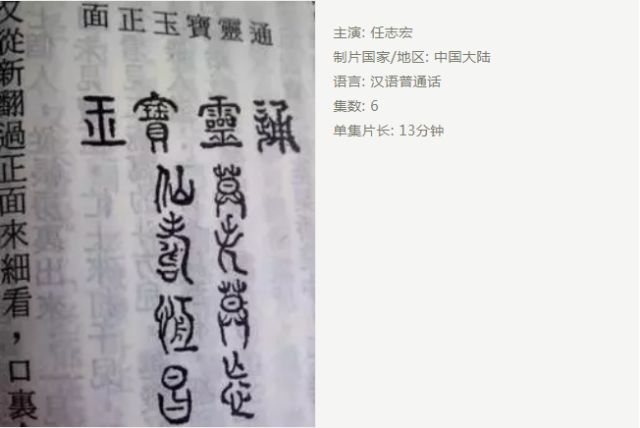 通靈寶玉正面
通靈寶玉
莫失莫忘
仙壽恆昌
又從新翻過正面來細看，口裏
主演: 任志宏
制片国家/地区: 中国大陆
语言: 汉语普通话
集数: 6
单集片长: 13分钟